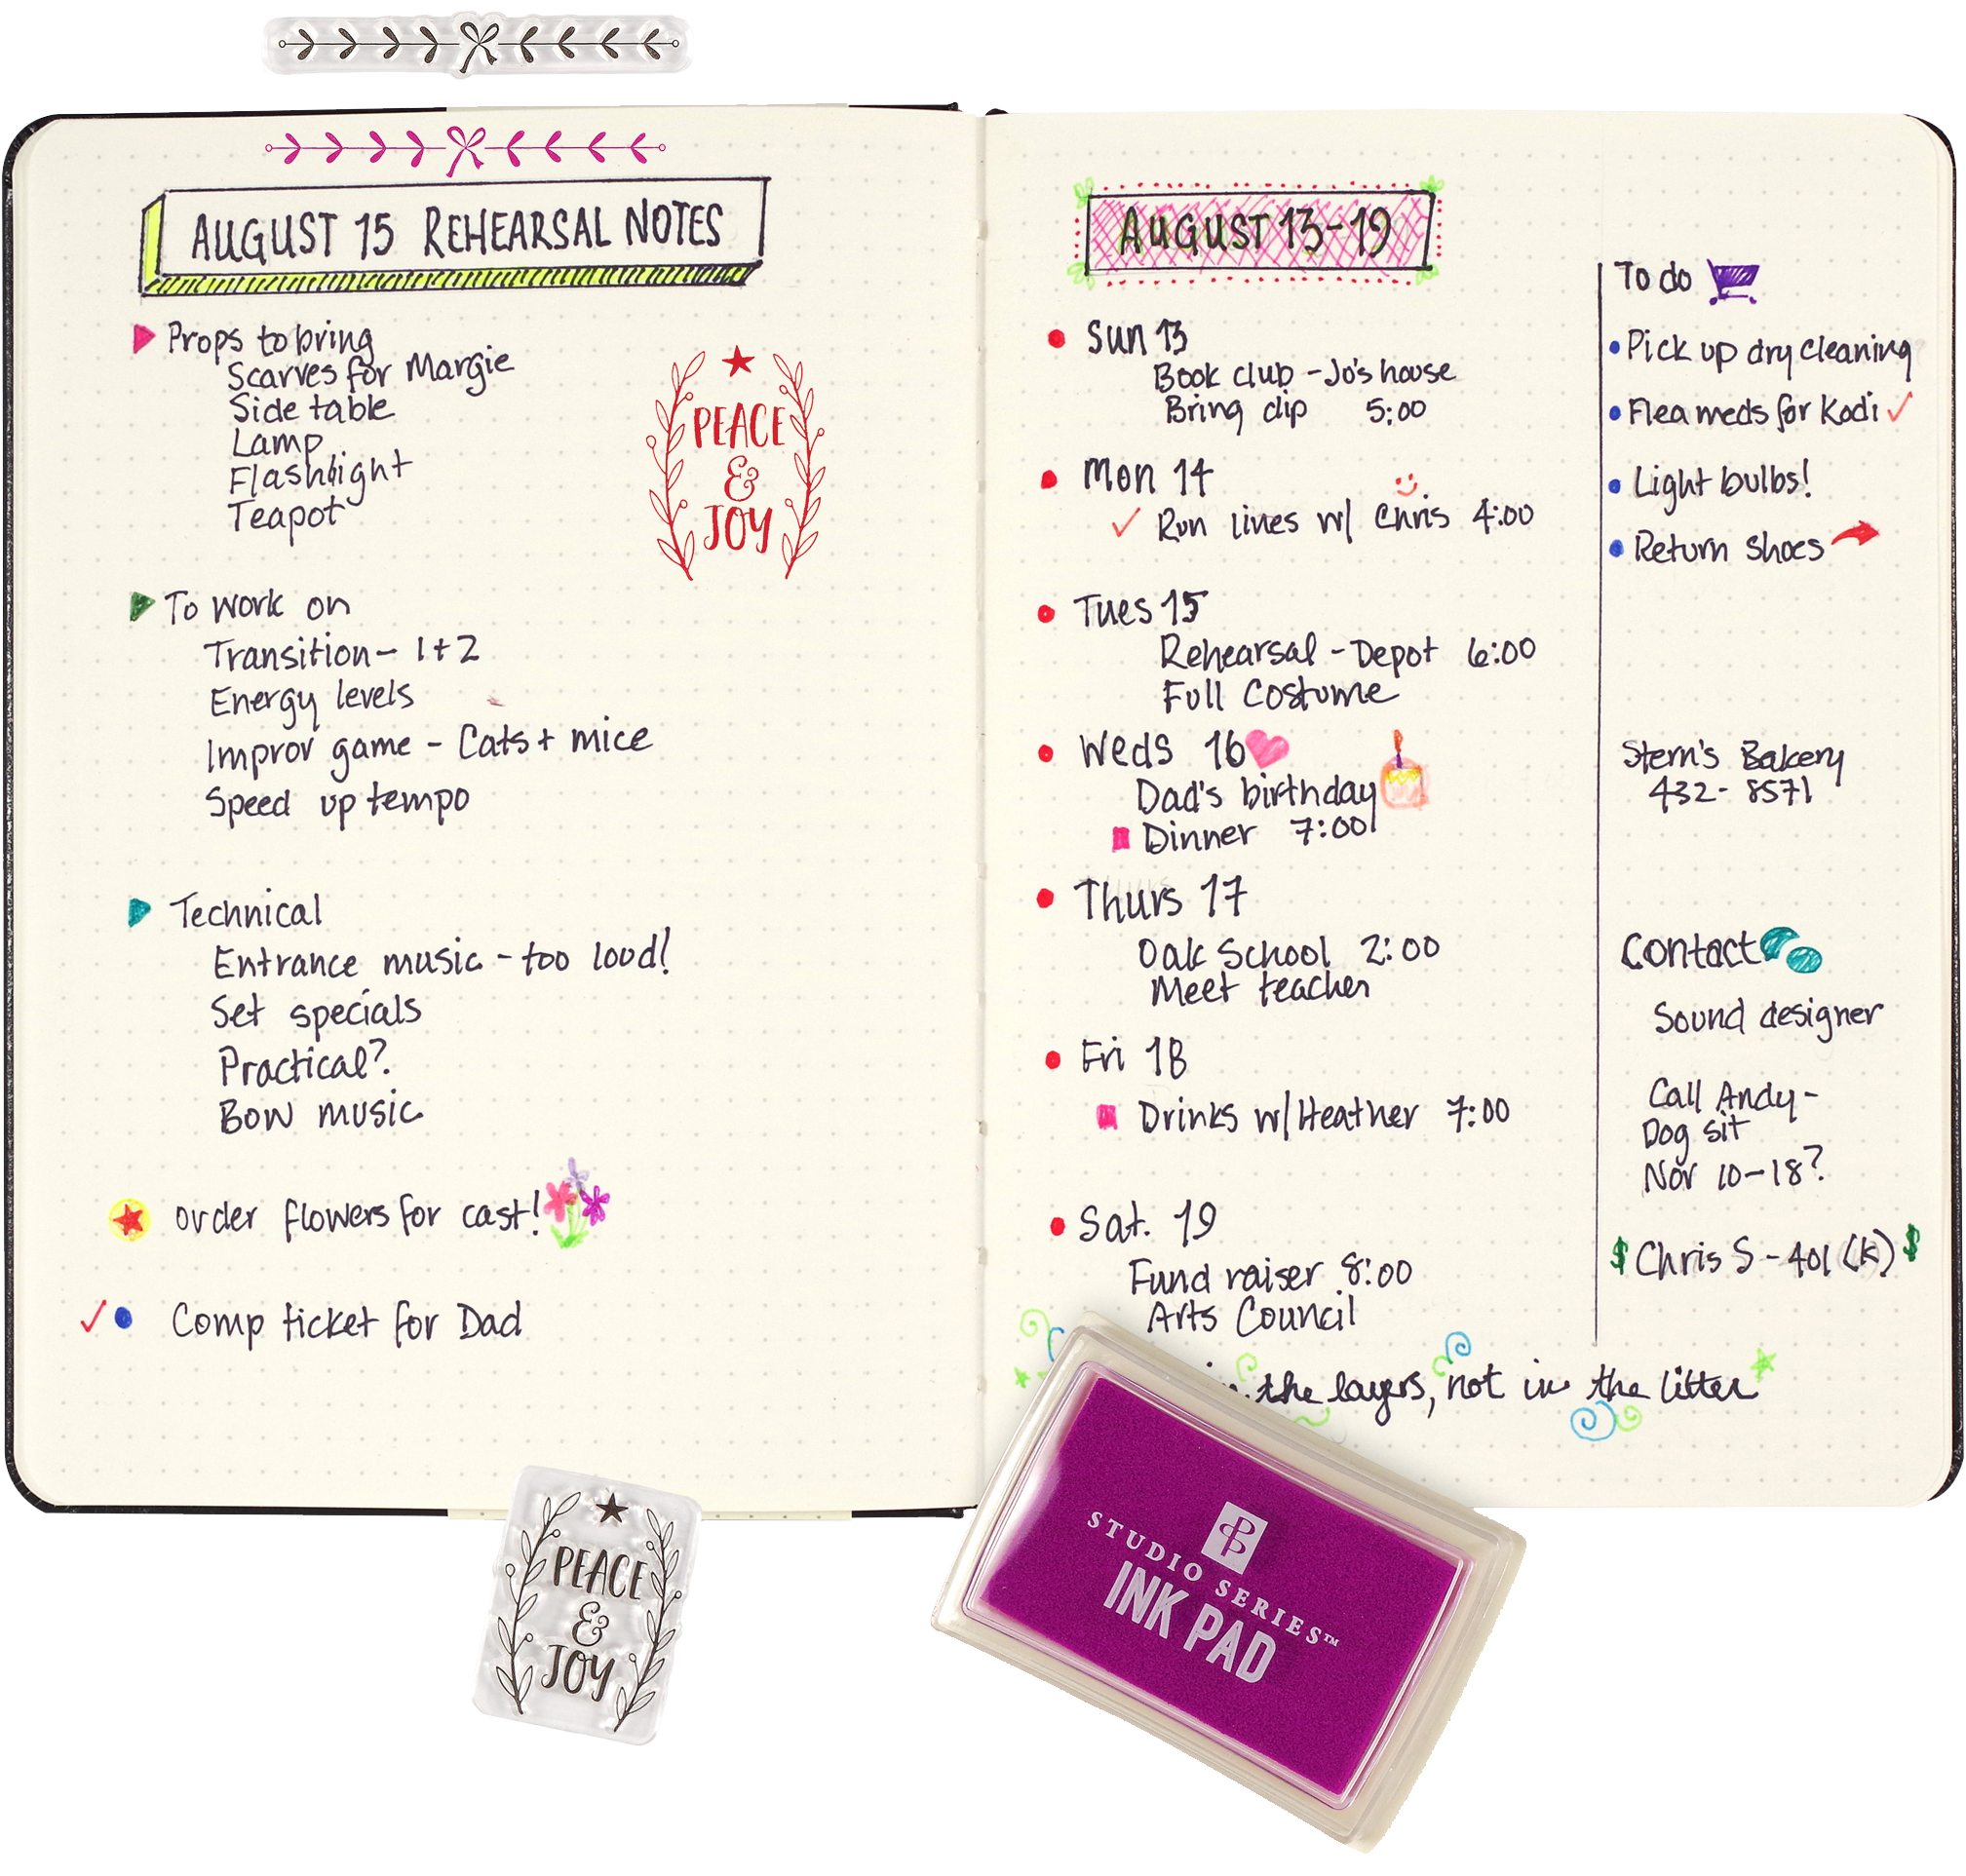 AUGUST 15 REHEARSAL NOTES
Props to bring
Scarves for Margie
Side table
Lamp
Flashlight
Teapot
PEACE
&
JOY
To work on
Transition - 1+2
Energy levels
Improv game - Cats + mice
Speed up tempo
Technical
Entrance music - too loud!
Set specials
Practical?
Bow music
order flowers for cast!
Comp ticket for Dad
AUGUST 13-19
Sun 13
Book club - Jo's house
Bring dip 5:00
Mon 14
Run lines w/ Chris 4:00
Tues 15
Rehearsal - Depot 6:00
Full Costume
Weds 16
Dad's birthday
Dinner 7:00
Thurs 17
Oak School 2:00
Meet teacher
Fri 18
Drinks w/ Heather 7:00
Sat. 19
Fund raiser 8:00
Arts Council
To do
Pick up dry cleaning
Flea meds for Kodi
Light bulbs!
Return shoes
Stern's Bakery
432-8571
Contact
Sound designer
Call Andy -
Dog sit
Nov 10-18?
$ Chris S - 401(k) $
in the layers, not in the litter
PEACE
&
JOY
STUDIO SERIES™
INK PAD